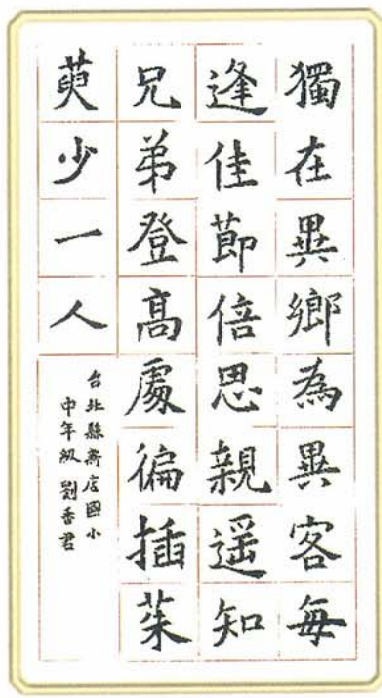 獨在異鄉為異客每
逢佳節倍思親遥知
兄弟登高處徧插茱
萸少一人
台北縣新店國小
中年級 劉香君